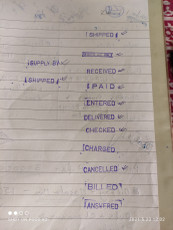 SHIPPED
SUPPLY BY
RECEIVED
SHIPPED
PAID
ENTERED
DELIVERED
CHECKED
CHARGED
CANCELLED
BILLED
ANSWERED